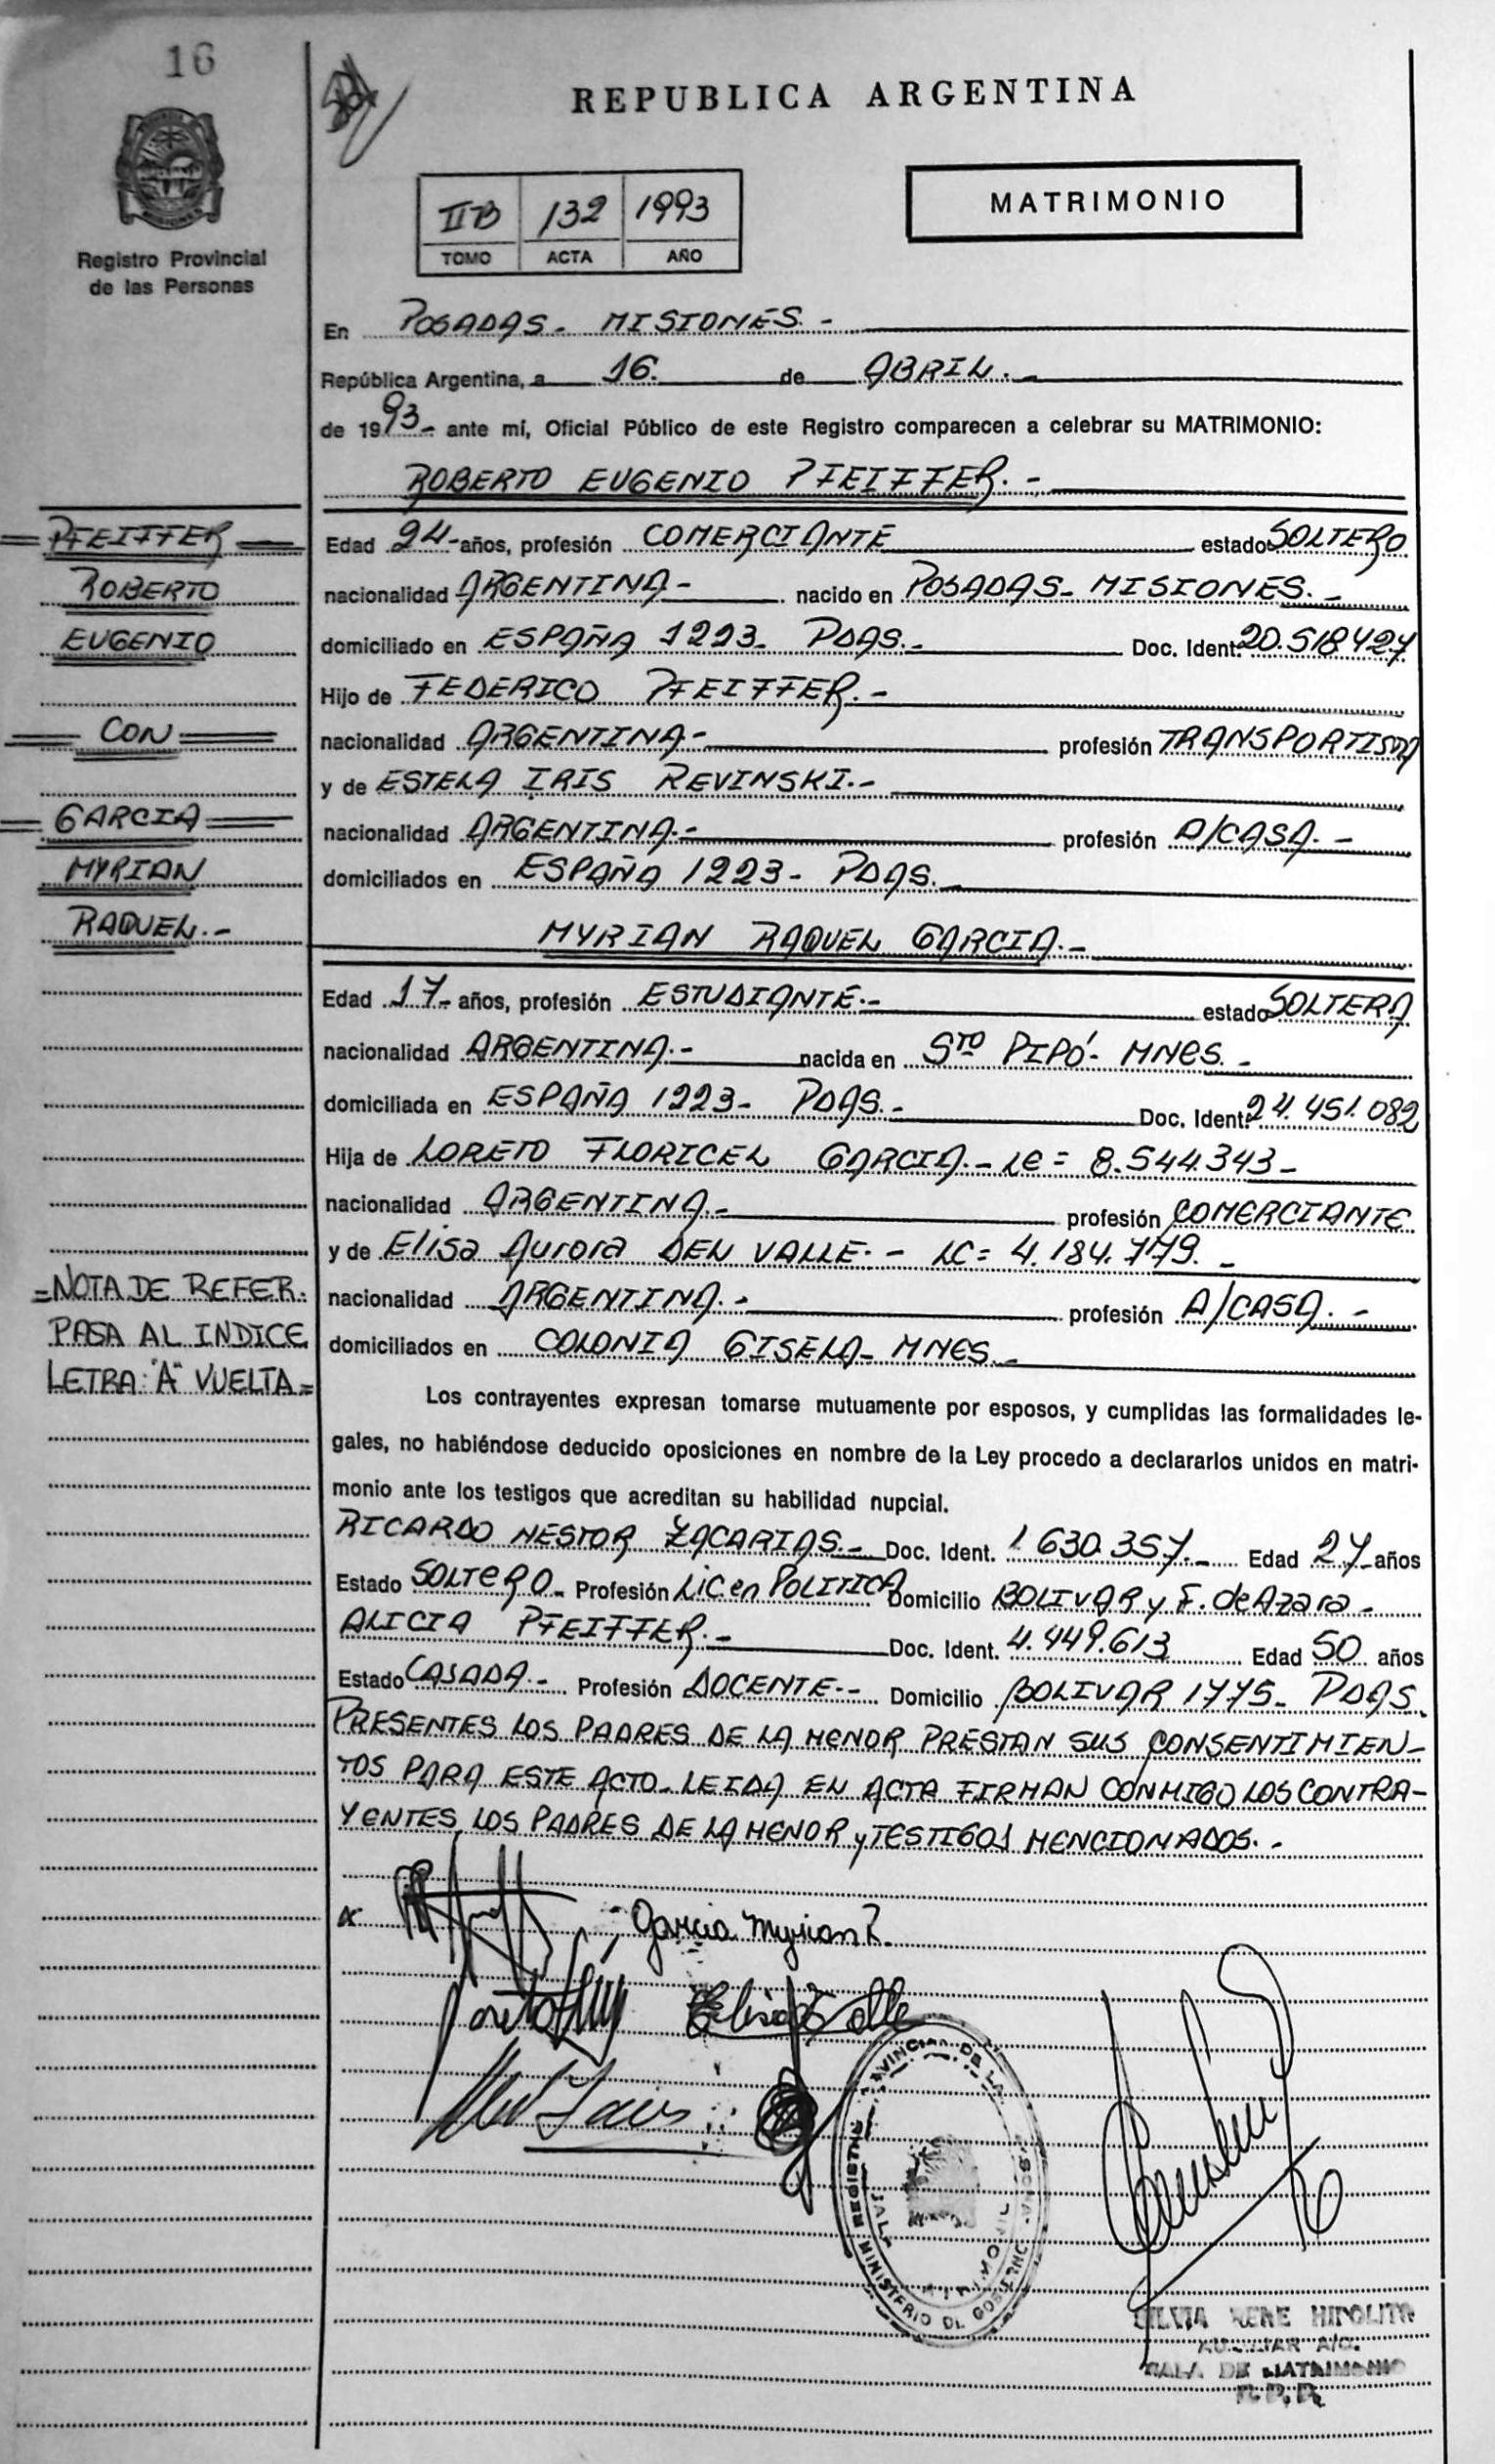 16
REPUBLICA ARGENTINA
MATRIMONIO
IIB 132 1993
TOMO ACTA AÑO
Registro Provincial
de las Personas
En POSADAS - MISIONES. -
República Argentina, a 16. de ABRIL. -
de 1993 - ante mí, Oficial Público de este Registro comparecen a celebrar su MATRIMONIO:
ROBERTO EUGENIO PFEIFFER. -
PFEIFFER
ROBERTO
EUGENIO
CON
GARCIA
MYRIAN
RAQUEL. -
Edad 24 - años, profesión COMERCIANTE estado SOLTERO
nacionalidad ARGENTINA - nacido en POSADAS - MISIONES. -
domiciliado en ESPAÑA 1223 - PDAS. - Doc. Ident. 20.518.427
Hijo de FEDERICO PFEIFFER. -
nacionalidad ARGENTINA - profesión TRANSPORTISTA
y de ESTELA IRIS REVINSKI. -
nacionalidad ARGENTINA. - profesión A/CASA. -
domiciliados en ESPAÑA 1223 - PDAS.
MYRIAN RAQUEL GARCIA. -
Edad 17 - años, profesión ESTUDIANTE. - estado SOLTERA
nacionalidad ARGENTINA. - nacida en Sto PIPÓ - MNES. -
domiciliada en ESPAÑA 1223 - PDAS. - Doc. Ident. 24.451.082
Hija de LORETO FLORICEL GARCIA. - LE = 8.544.343 -
nacionalidad ARGENTINA. - profesión COMERCIANTE
y de Elisa Aurora DEL VALLE. - LC = 4.184.779. -
nacionalidad ARGENTINA. - profesión A/CASA. -
domiciliados en COLONIA GISELA - MNES. -
= NOTA DE REFER.
PASA AL INDICE
LETRA: "A" VUELTA =
Los contrayentes expresan tomarse mutuamente por esposos, y cumplidas las formalidades le-
gales, no habiéndose deducido oposiciones en nombre de la Ley procedo a declararlos unidos en matri-
monio ante los testigos que acreditan su habilidad nupcial.
RICARDO NESTOR ZACARIAS. - Doc. Ident. 1.630.357. - Edad 27 - años
Estado SOLTERO - Profesión Lic en POLITICA Domicilio BOLIVAR y F. de Azara -
ALICIA PFEIFFER. - Doc. Ident. 4.449.613 Edad 50 años
Estado CASADA. - Profesión DOCENTE. - Domicilio BOLIVAR 1775 - PDAS.
PRESENTES LOS PADRES DE LA MENOR PRESTAN SUS CONSENTIMIEN-
TOS PARA ESTE ACTO - LEIDA EN ACTA FIRMAN CONMIGO LOS CONTRA-
YENTES, LOS PADRES DE LA MENOR y TESTIGOS MENCIONADOS. -
Garcia Myrian R.
MINISTERIO DE GOBIERNO
SILVIA RENE HIPOLITO
AUXILIAR A/C.
SALA DE MATRIMONIO
R.P.P.